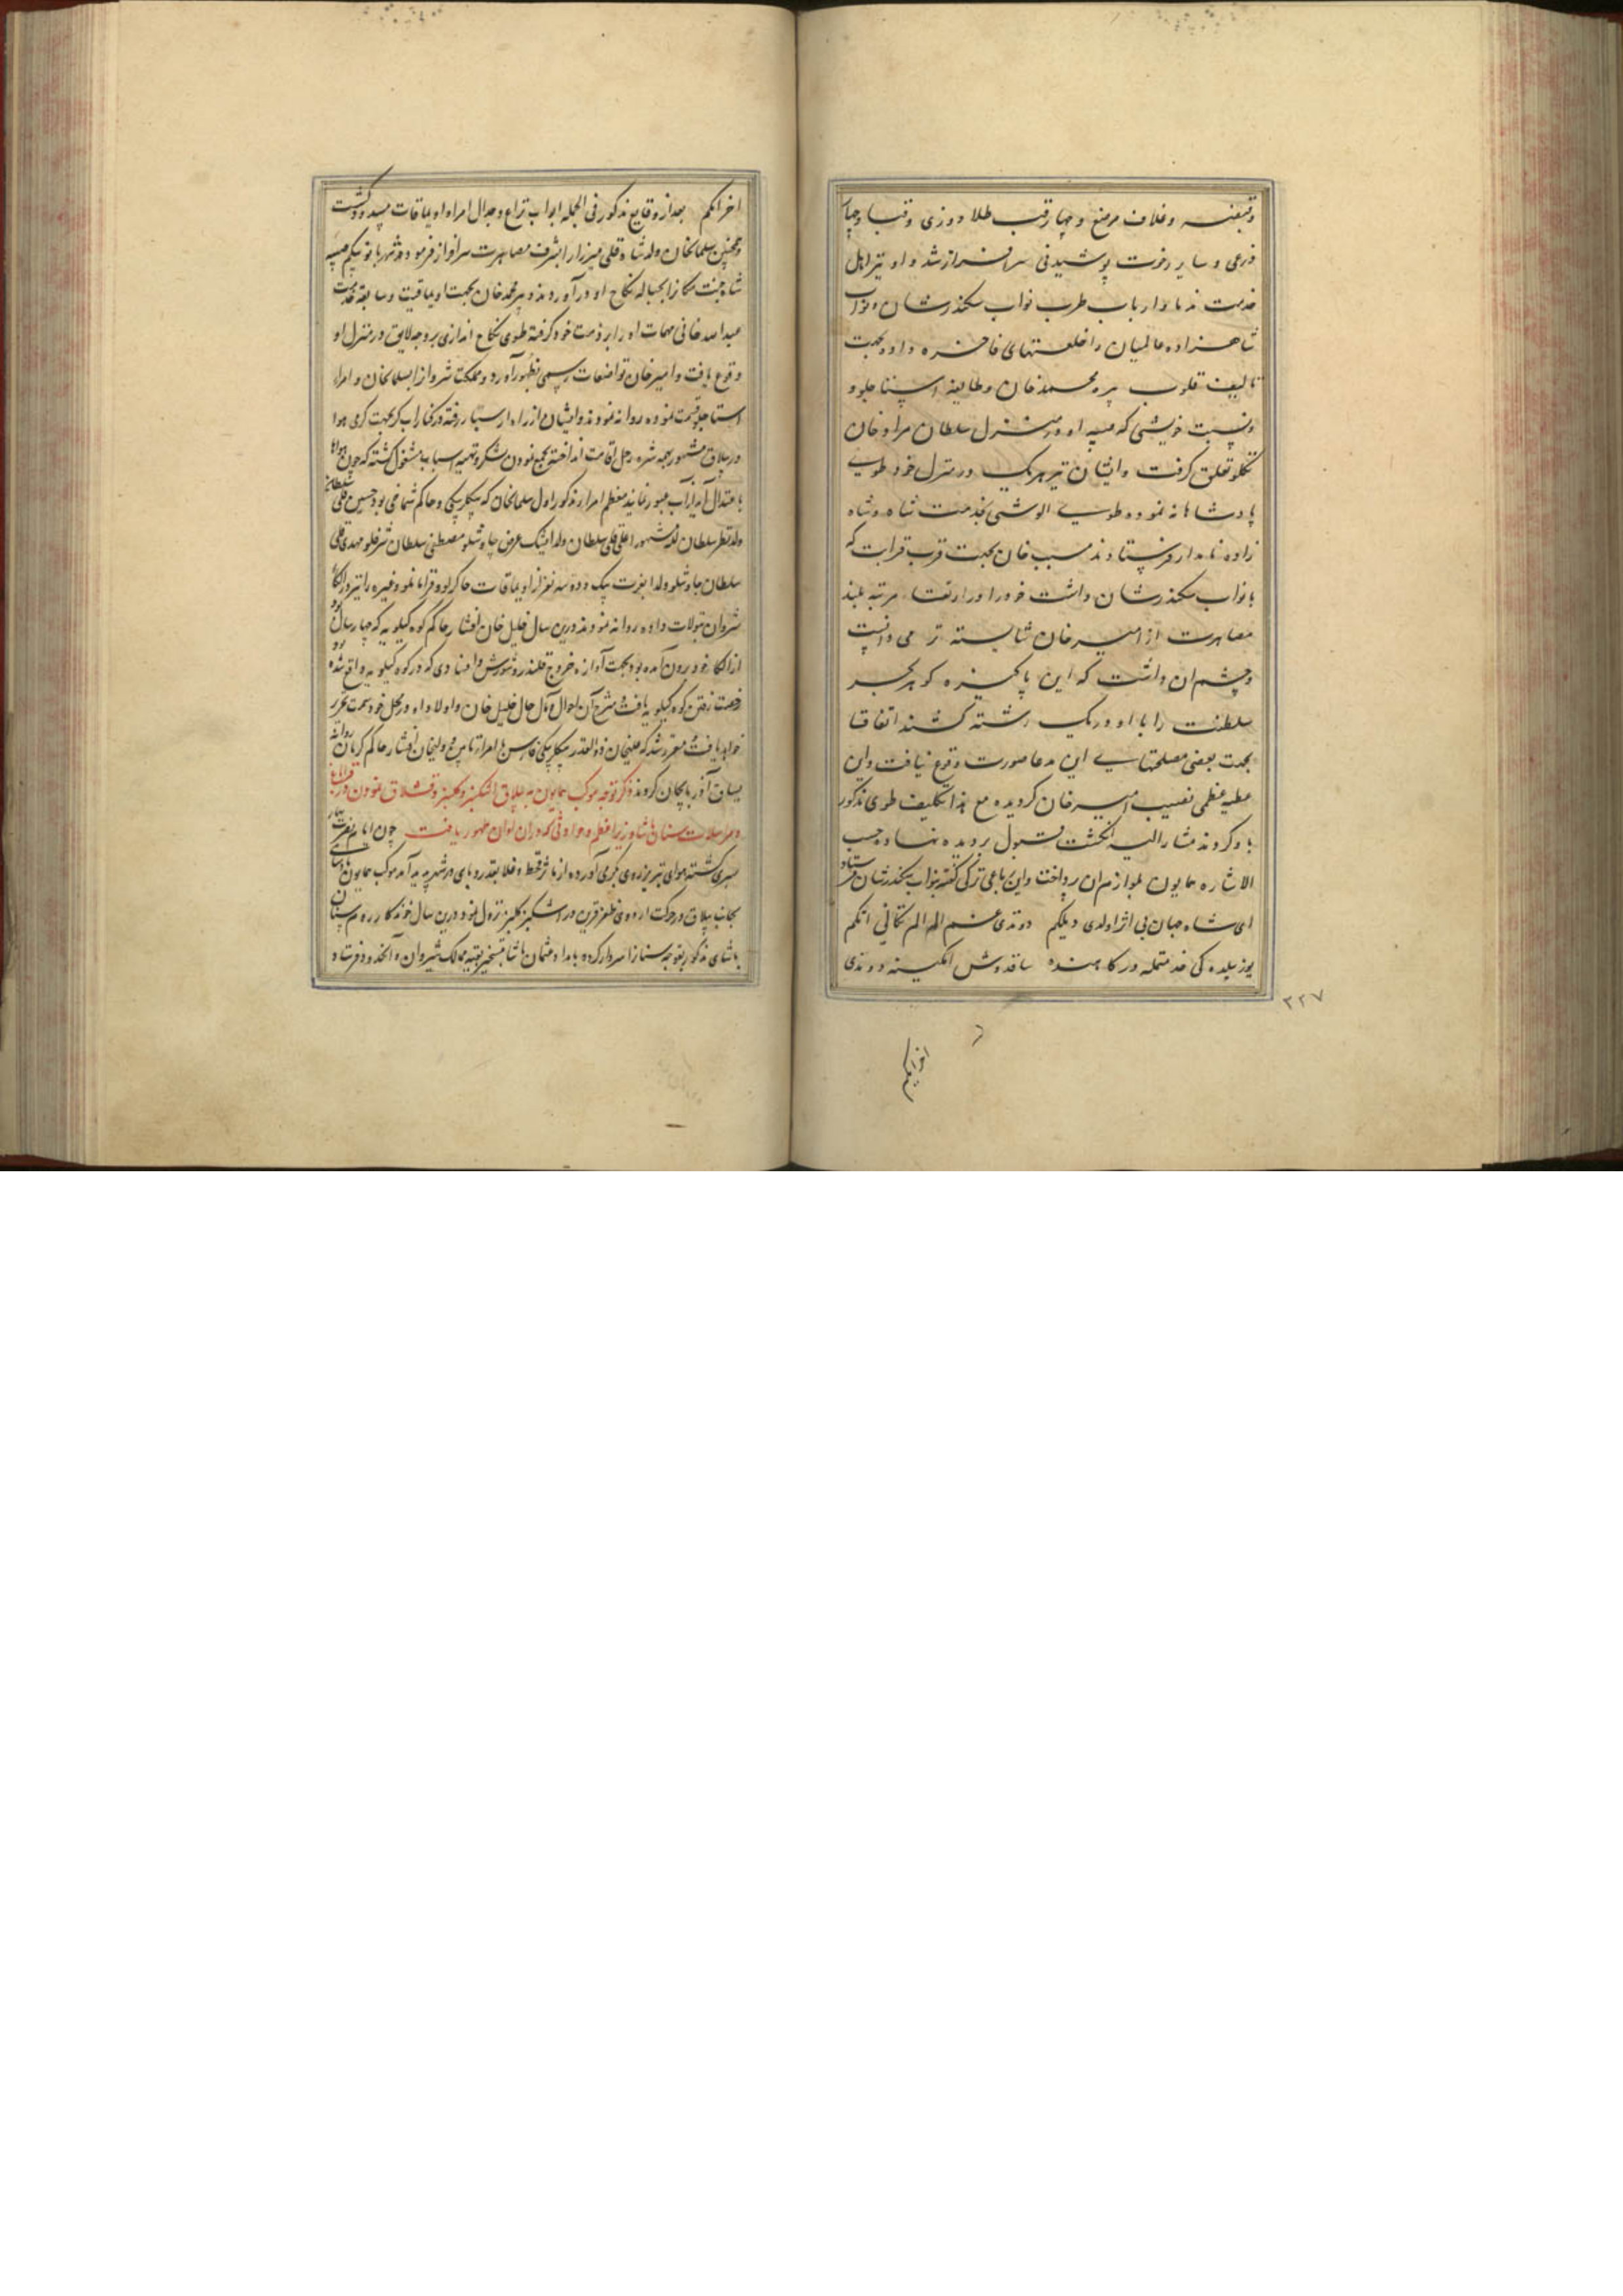 وقبضه وغلاف مرصع و چهارقب طلا دوزی و قبا و چهار
ذرعی و سایر رخوت پوشیدنی سرافراز شد و او نیز اهل
خدمت ندما و ارباب طرب نواب سکندرشان و نواب
شاهزاده عالمیان را خلعتهای فاخره داده بجهت
تالیف قلوب پیره محمدخان و طایفه استاجلو و
نسبت خویشی که صبیه او در منزل سلطان مراد خان
تکلو تعلق گرفت و ایشان نیز هریک در منزل خود طویی
پادشاهانه نموده طوی الوشی بخدمت شاه و شاه
زاده نامدار فرستادند مسیب خان بجهت قرب قرابت که
با نواب سکندرشان داشت خود را در ارتقاء مرتبه بلند
مصاهرت از امیرخان شایسته تر می دانست
و چشم ان داشت که این پاکیزه گوهر بحر
سلطنت را با او در یک رشته کشند اتفاقا
بجهت بعضی مصلحتهایی این مدعا صورت وقوع نیافت و این
عطیه عظمی نصیب امیرخان گردیده مع هذا تکلیف طوی مذکور
باو کردند مشارالیه انگشت قبول بردیده نهاد و حسب
الاشاره همایون بلوازم ان پرداخت و این رباعی ترکی گفته بنواب سکندرشان فرستاد
ای شاه جهان بی اثر اولدی دیلکم دوندی غم الم
یوز ییلده کی خدمتمله درکاهنده ساقدوش دوندی
۳۲۷
اخر امکم
اخر امکم بعد از وقایع مذکور فی الجمله ابواب نزاع و جدال امراء اویماقات مسدود گشت
و همچنین سلمانخان ولد شاه قلی میرزا را بشرف مصاهرت سرافراز فرموده شهربانو بیگم صبیه
شاه جنت مکان را بحباله نکاح او درآوردند و پیره محمدخان بجهت اویماقیت و سابقه خدمت
عبدالله خانی مهمات او را بر ذمت خود گرفته طوی نکاح اندازی بر وجه لایق در منزل او
وقوع یافت و امیرخان تواضعات رسمی بظهور آورد و مملکت شروان را بسلمانخان و امراء
استاجلو قسمت نموده روانه نمودند و ایشان از راه ارسبار رفته در کنار اب کر بجهت گرمی هوا
در ییلاق مشهور رحل اقامت انداخته بجمع نمودن لشکر و تهیه اسباب مشغول گشته که چون هوا
باعتدال آید از آب عبور نمایند معظم امراء مذکور اول سلمانخان که بیگلربیگی و حاکم شماخی بود حسین قلی سلطان
ولد سلطان علی قلی سلطان ولد ایشیک عوض چاوشلو مصطفی سلطان شرفلو مهدی قلی
سلطان چاوشلو ولد بیک و دو سه نفر از اویماقات حاکرلو و قرامانلو و غیره را نیز در الکاء
شروان تیولات داده روانه نمودند و درین سال خلیل خان افشار حاکم کوه کیلویه که چهار سال بود
از الکاء خود بیرون آمده بود بجهت آوازه خروج قلندر و شورش و فسادی که در کوه کیلویه واقع شده بود
رخصت رفتن کوه کیلویه یافت شرح آن احوال و مآل حال خلیل خان و اولاد او در محل خود سمت تحریر
خواهد یافت مقرر شد که علیخان ذوالقدر بیگلربیگی فارس با امراء تابین و ولیخان افشار حاکم کرمان روانه
یساق آذربایجان گردند ذکر توجه موکب همایون به ییلاق اشکنبر و کلیبر و قشلاق نمودن در قراباغ
و مراسلات سنان پاشاء وزیر اعظم و حوادثی که در ان اوان ظهور یافت چون ایام بهار
سپری گشته هوای تبریز روی بگرمی آورده از قحط و غلا بقدر وبای در شهر پدید آمد موکب همایون
بجانب ییلاق در حرکت اردوی ظفر قرین در اشکنبر کلیبر نزول نمود و درین سال خوندکار روم سنان
پاشای مذکور سردار کرده بامداد عثمان پاشا بتسخیر بقیه ممالک شیروان و آنحدود فرستاد